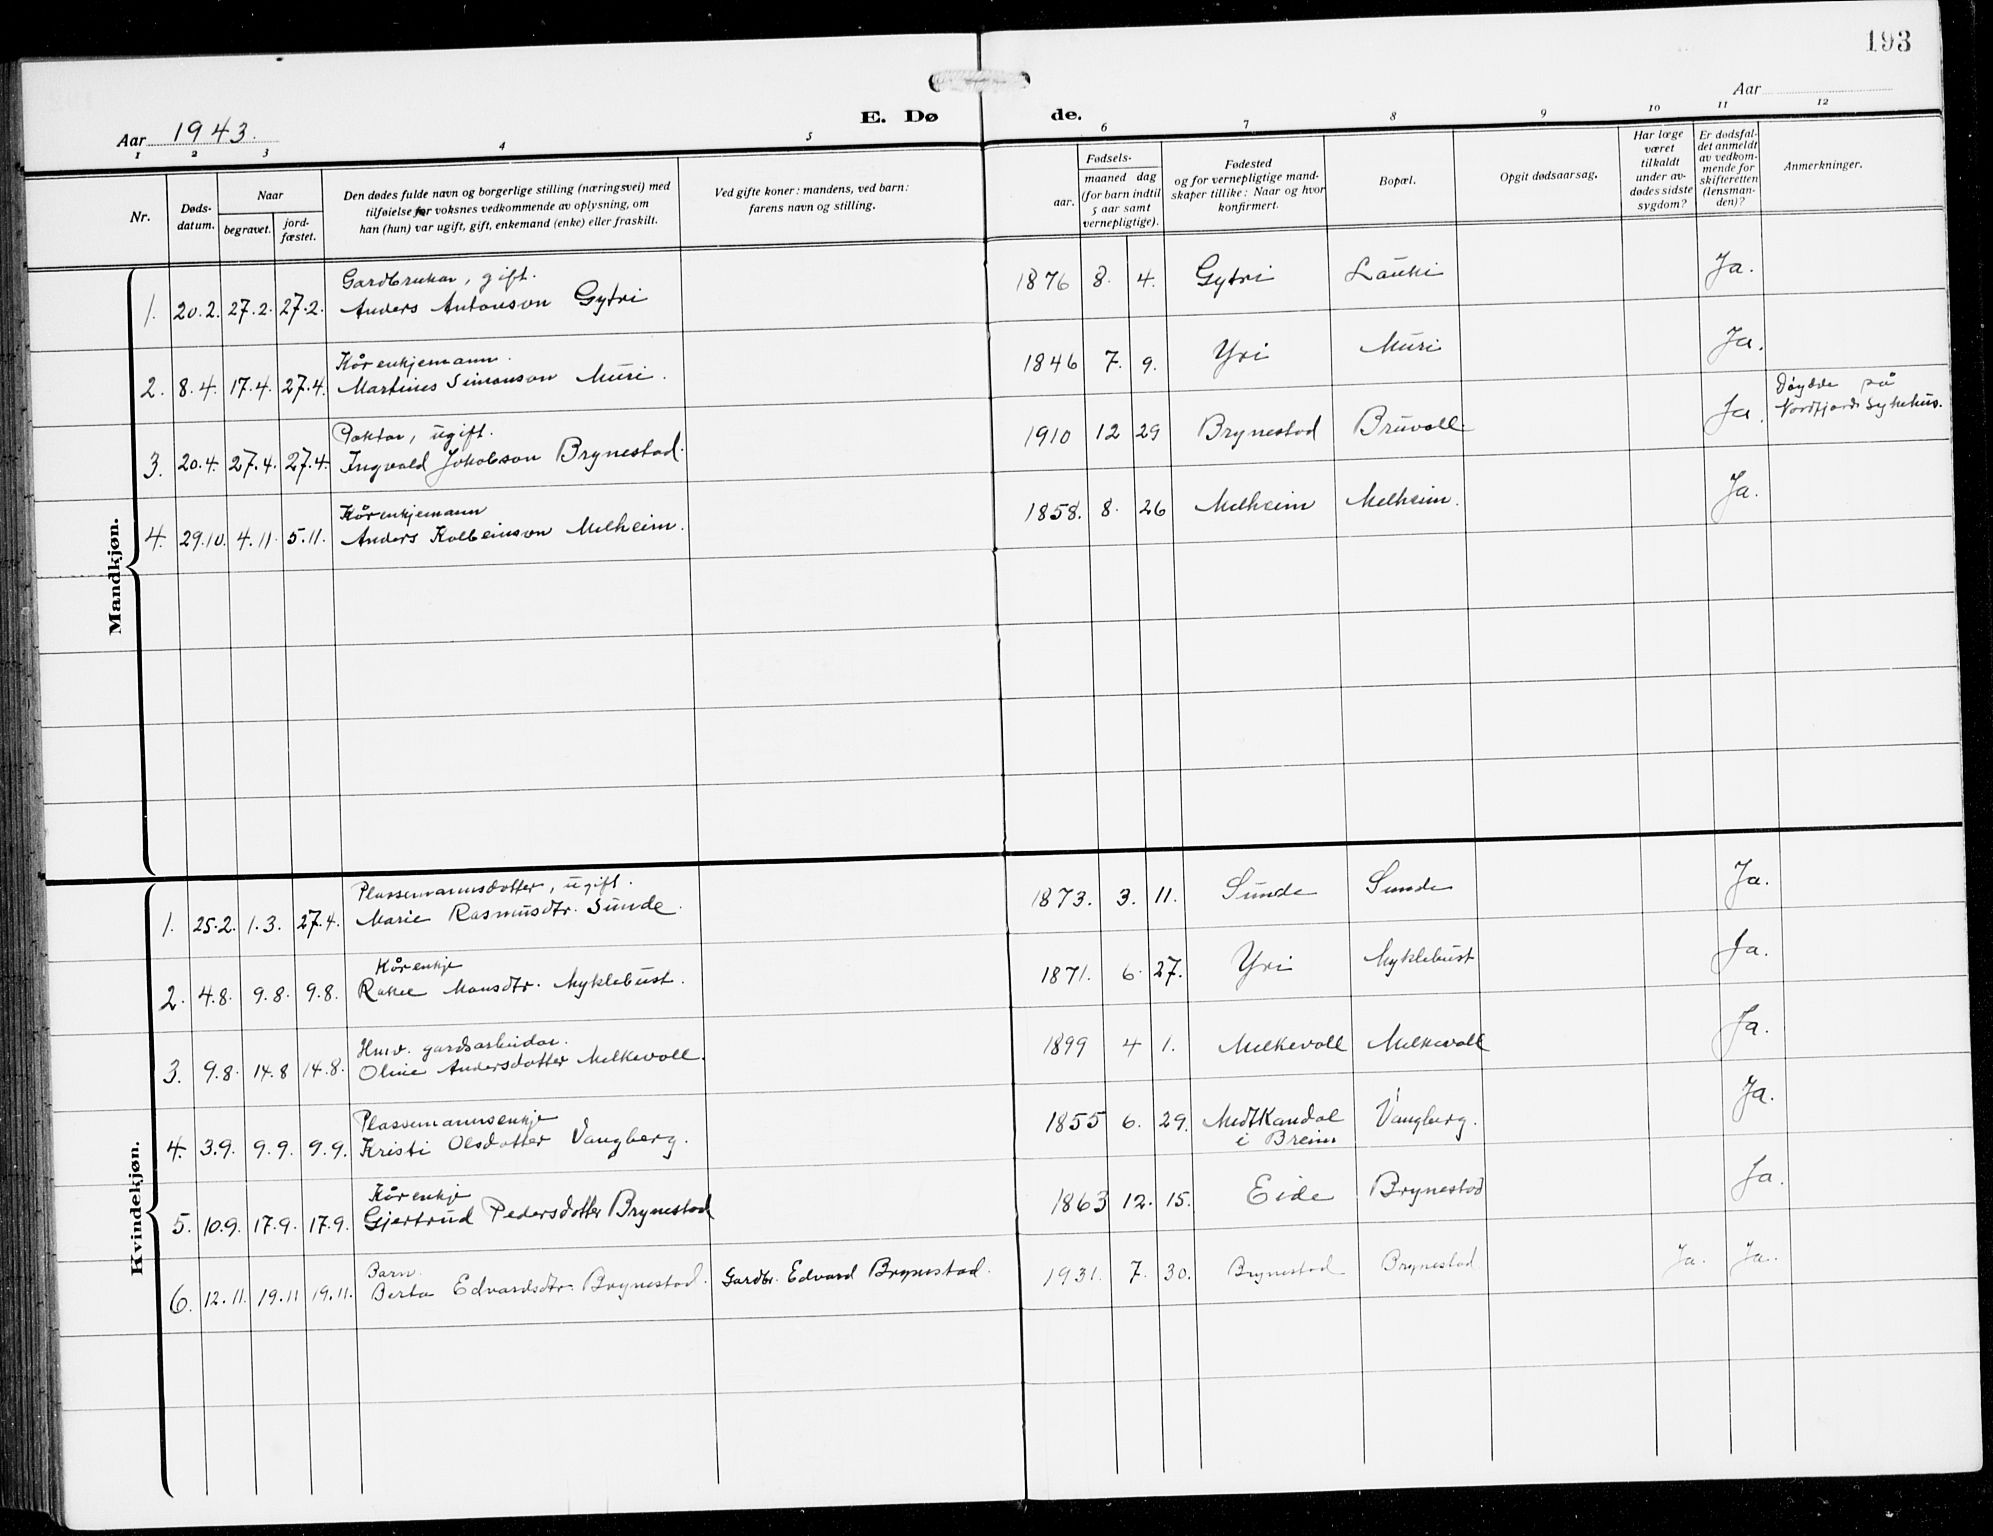 193
Aar 1943.
E. Døde.
Aar
1 2 3 4 5 6 7 8 9 10 11 12
Nr.
Dødsdatum.
Naar
begravet.
jordfæstet.
Den dødes fulde navn og borgerlige stilling (næringsvei) med
tilføielse for voksnes vedkommende av oplysning, om
han (hun) var ugift, gift, enkemand (enke) eller fraskilt.
Ved gifte koner: mandens, ved barn:
farens navn og stilling.
Fødsels-
aar.
maaned dag
(for barn indtil
5 aar samt
vernepligtige).
Fødested
og for vernepligtige mandskaper tillike: Naar og hvor
konfirmert.
Bopæl.
Opgit dødsaarsag.
Har læge
været
tilkaldt
under avdødes sidste
sygdom?
Er dødsfaldet anmeldt
av vedkommende for
skifteretten
(lensmanden)?
Anmerkninger.
Mandkjøn.
Gardbrukar, gift.
1. 20.2. 27.2. 27.2. Anders Antonson Gytri 1876 8. 4. Gytri Lauki Ja.
Kårenkjemann.
2. 8.4. 17.4. 27.4. Martinus Simonson Muri. 1846 7. 9. Yri Muri Ja.
ugift.
3. 20.4. 27.4. 27.4. Ingvald Jokobson Brynestad. 1910 12 29 Brynestad Bruvoll Ja. Døydde på
Nordfjord Sykehus.
Kårenkjemann
4. 29.10. 4.11. 5.11. Anders Kolbeinson Melheim. 1858. 8. 26 Melheim Melheim. Ja.
Kvindekjøn.
Plassemannsdotter, ugift.
1. 25.2. 1.3. 27.4. Marie Rasmusdtr. Sunde. 1873. 3. 11. Sunde Sunde Ja.
Kårenkje
2. 4.8. 9.8. 9.8. Rakel Monsdtr. Myklebust. 1871. 6. 27. Yri Myklebust Ja.
Husv. gardsarbeidar.
3. 9.8. 14.8 14.8. Oline Andersdotter Melkevoll. 1899 4 1. Melkevoll Melkevoll Ja.
Plassemannsenkje
4. 3.9. 9.9. 9.9. Kristi Olsdotter Vangberg. 1855 6. 29. Medtkandal
i Breim Vangberg. Ja.
Kårenkje
5. 10.9. 17.9. 17.9. Gjertrud Pedersdotter Brynestad 1863 12. 15. Eide Brynestad Ja.
Barn.
6. 12.11. 19.11 19.11. Berta Edvardsdtr. Brynestad. Gardbr. Edvard Brynestad. 1931. 7. 30. Brynestad Brynestad Ja. Ja.